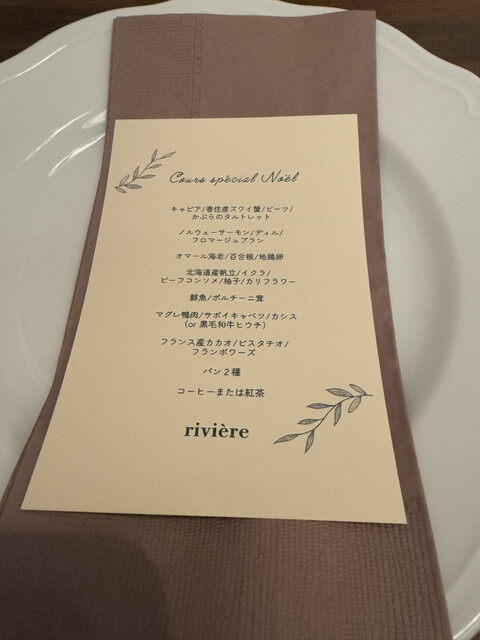 Cours spécial Noël
キャビア/香住産ズワイ蟹/ビーツ/
かぶらのタルトレット
ノルウェーサーモン/ディル/
フロマージュブラン
オマール海老/百合根/地鶏卵
北海道産帆立/イクラ/
ビーフコンソメ/柚子/カリフラワー
鮮魚/ポルチーニ茸
マグレ鴨肉/サボイキャベツ/カシス
(or 黒毛和牛ヒウチ)
フランス産カカオ/ピスタチオ/
フランボワーズ
パン2種
コーヒーまたは紅茶
rivière